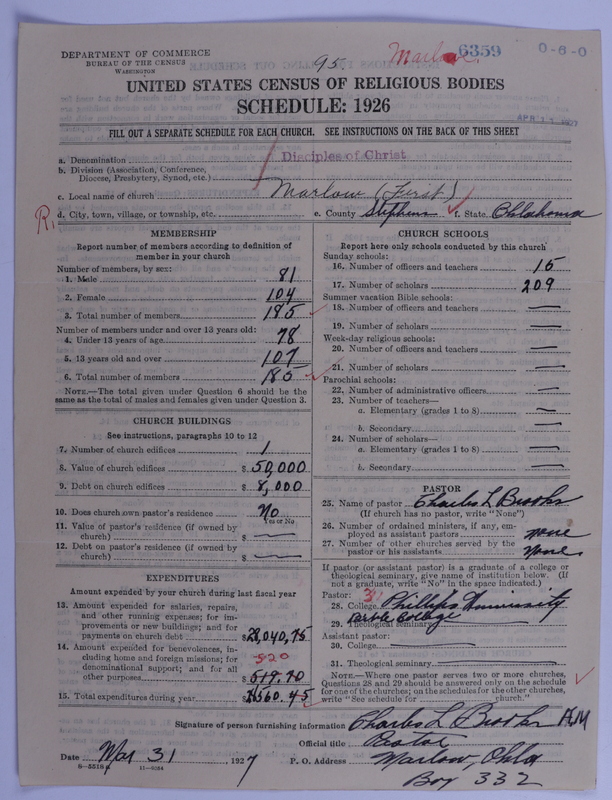 DEPARTMENT OF COMMERCE
BUREAU OF THE CENSUS
WASHINGTON
95 Marlow 6359 0-6-0
UNITED STATES CENSUS OF RELIGIOUS BODIES
SCHEDULE: 1926
APR 11 1927
FILL OUT A SEPARATE SCHEDULE FOR EACH CHURCH. SEE INSTRUCTIONS ON THE BACK OF THIS SHEET
a. Denomination Disciples of Christ
b. Division (Association, Conference,
Diocese, Presbytery, Synod, etc.)
c. Local name of church Marlow (First)
R, d. City, town, village, or township, etc. e. County Stephens f. State Oklahoma
MEMBERSHIP
Report number of members according to definition of
member in your church
Number of members, by sex:
1. Male 81
2. Female 104
3. Total number of members 185
Number of members under and over 13 years old:
4. Under 13 years of age 78
5. 13 years old and over 107
6. Total number of members 185
NOTE.—The total given under Question 6 should be
the same as the total of males and females given under Question 3.
CHURCH BUILDINGS
See instructions, paragraphs 10 to 12
7. Number of church edifices 1
8. Value of church edifices $ 50,000
9. Debt on church edifices $ 8,000
10. Does church own pastor's residence No
Yes or No
11. Value of pastor's residence (if owned by
church) $ —
12. Debt on pastor's residence (if owned by
church) $ —
EXPENDITURES
Amount expended by your church during last fiscal year
13. Amount expended for salaries, repairs,
and other running expenses; for im-
provements or new buildings; and for
payments on church debt $ 28,040,75
14. Amount expended for benevolences, in-
cluding home and foreign missions; for 520
denominational support; and for all
other purposes $ 519.70
15. Total expenditures during year $ 560.45
CHURCH SCHOOLS
Report here only schools conducted by this church
Sunday schools:
16. Number of officers and teachers 15
17. Number of scholars 209
Summer vacation Bible schools:
18. Number of officers and teachers —
19. Number of scholars —
Week-day religious schools:
20. Number of officers and teachers —
21. Number of scholars —
Parochial schools:
22. Number of administrative officers —
23. Number of teachers—
a. Elementary (grades 1 to 8) —
b. Secondary —
24. Number of scholars—
a. Elementary (grades 1 to 8) —
b. Secondary —
PASTOR
25. Name of pastor Charles L Brooks
(If church has no pastor, write "None")
26. Number of ordained ministers, if any, em-
ployed as assistant pastors none
27. Number of other churches served by the
pastor or his assistants None
If pastor (or assistant pastor) is a graduate of a college or
theological seminary, give name of institution below. (If
not a graduate, write "No" in the space indicated.)
Pastor:
28. College Phillips University
29. Theological seminary Bible College
Assistant pastor:
30. College —
31. Theological seminary —
NOTE.—Where one pastor serves two or more churches,
Questions 28 and 29 should be answered only on the schedule
for one of the churches; on the schedules for the other churches,
write "See schedule for church."
Signature of person furnishing information Charles L Brooks
Official title Pastor
Date Mar 31, 1927 P. O. Address Marlow, Okla
8—5518a 11—9084 Box 332